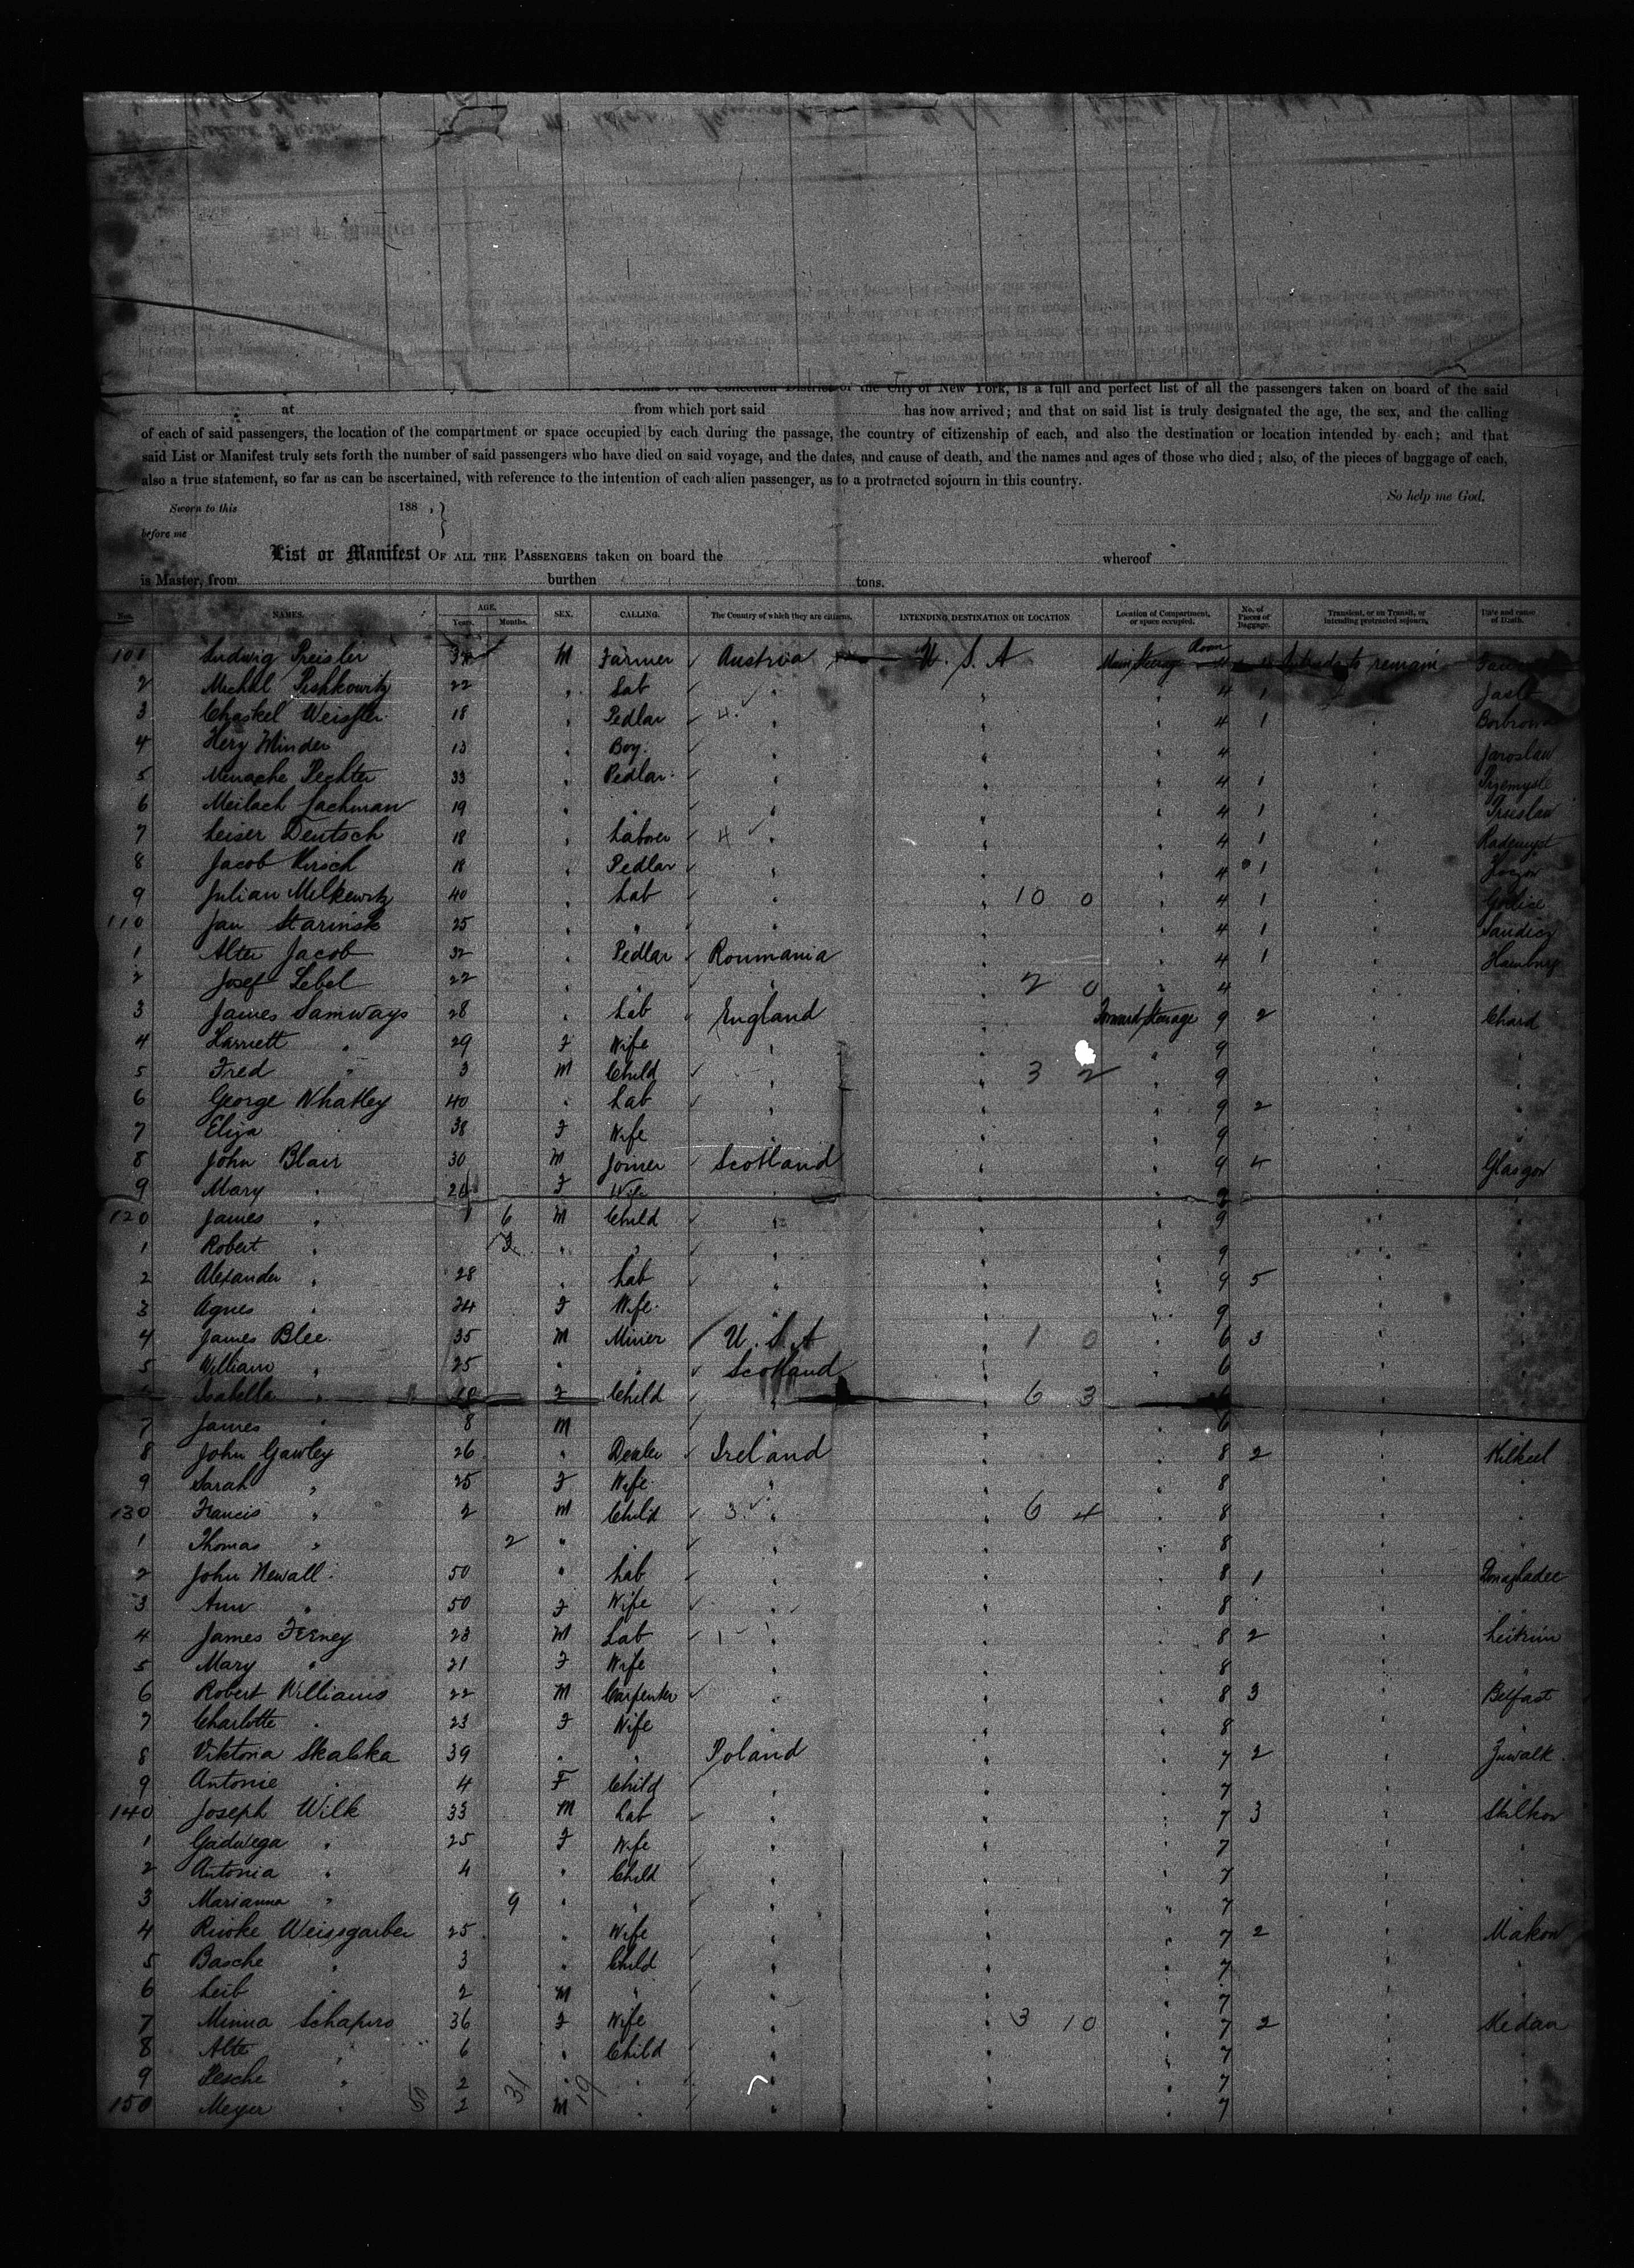 of the Collection District of the City of New York, is a full and perfect list of all the passengers taken on board of the said
at from which port said has now arrived; and that on said list is truly designated the age, the sex, and the calling
of each of said passengers, the location of the compartment or space occupied by each during the passage, the country of citizenship of each, and also the destination or location intended by each; and that
said List or Manifest truly sets forth the number of said passengers who have died on said voyage, and the dates, and cause of death, and the names and ages of those who died; also, of the pieces of baggage of each,
also a true statement, so far as can be ascertained, with reference to the intention of each alien passenger, as to a protracted sojourn in this country.
So help me God.
Sworn to this 188 ,
before me
List or Manifest OF ALL THE PASSENGERS taken on board the whereof
is Master, from burthen tons.
Nos. NAMES. AGE. Years. Months. SEX. CALLING. The Country of which they are citizens. INTENDING DESTINATION OR LOCATION Location of Compartment, or space occupied. No. of Pieces of Baggage. Transient, or on Transit, or intending protracted sojourn. Date and cause of Death.
101 Ludwig Preisler M Farmer Austria U. S. A Main Steerage Room 4 Intends to remain
2 Michal Pishkowitz 22 " Lab " " " 4 1 " Jaslo
3 Chaskel Weissler 18 " Pedlar 4. " " " 4 1 "
4 Herz Winder 13 " Boy. " " " 4 " Jaroslau
5 Menache Pechter 33 " Pedlar " " " 4 1 "
6 Meilach Lachman 19 " " " " " 4 1 "
7 Leiser Deutsch 18 " Laborer 4 " " " 4 1 "
8 Jacob Hirsch 18 " Pedlar " " " 4 1 "
9 Julian Milkewitz 40 " Lab " " 10 0 " 4 1 " Gorlice
110 Jan Starinsk 25 " " " " " 4 1 " Sandicz
1 Alter Jacob 32 " Pedlar Roumania " " 4 1 " Hamburg
2 Josef Lebel 22 " " " " 2 0 " 4 "
3 James Samways 28 " Lab England " Forward Steerage 9 2 " Chard
4 Harriett " 29 F Wife " " " 9 " "
5 Fred " 3 M Child " " 3 2 " 9 " "
6 George Whatley 40 " Lab " " " 9 2 " "
7 Eliza 38 F Wife " " " 9 " "
8 John Blair 30 M Joiner Scotland " " 9 4 " Glasgow
9 Mary " 24 F Wife " " " 9 " "
120 James " 1 6 M Child " " " 9 " "
1 Robert " 3 " " " " " 9 " "
2 Alexander " 28 " Lab " " " 9 5 " "
3 Agnes " 24 F Wife " " " 9 " "
4 James Blee 35 M Miner U. S. A " 1 0 " 6 3 " "
5 William " 25 " " Scotland " " 6 " "
Isabella " 10 F Child " " 6 3 " 6 " "
7 James " 8 M " " " 6 " "
8 John Gawley 26 " Dealer Ireland " " 8 2 " Kilkeel
9 Sarah " 25 F Wife " " " 8 " "
130 Francis " 2 M Child 3 " " 6 4 " 8 " "
1 Thomas " 2 " " " " " 8 " "
2 John Newall 50 " Lab " " " 8 1 " Donaghadee
3 Ann " 50 F Wife " " " 8 "
4 James Ferney 23 M Lab 1 " " " 8 2 " Leitrim
5 Mary " 21 F Wife " " " 8 " "
6 Robert Williams 22 M Carpenter " " " 8 3 " Belfast
7 Charlotte " 23 F Wife " " " 8 " "
8 Viktoria Skalska 39 " " Poland " " 7 2 " Suwalk
9 Antonie " 4 F Child " " " 7 " "
140 Joseph Wilk 33 M Lab " " " 7 3 "
1 Gaduvega " 25 F Wife " " " 7 " "
2 Antonia " 4 " Child " " " 7 " "
3 Marianna " 9 " " " " " 7 " "
4 Riwke Weissgarber 25 " Wife " " " 7 2 " Makow
5 Basche " 3 " Child " " " 7 " "
6 Leib " 2 M " " " " 7 " "
7 Minna Schapiro 36 F Wife " " 3 10 " 7 2 "
8 Alte " 6 " Child " " " 7 " "
9 Pesche " 2 " " " " " 7 " "
150 Meyer " 2 M " " " " 7 " "
31 19